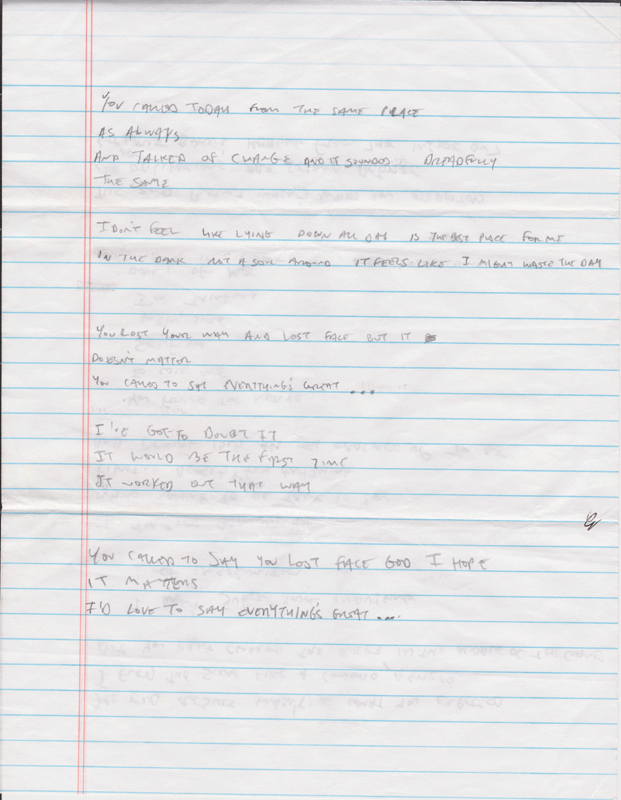 YOU CALLED TODAY FROM THE SAME PLACE
AS ALWAYS
AND TALKED OF CHANGE AND IT SOUNDED DREADFULLY
THE SAME
I DON'T FEEL LIKE LYING DOWN ALL DAY IS THE BEST PLACE FOR ME
IN THE DARK NOT A SOUL AROUND IT FEELS LIKE I MIGHT WASTE THE DAY
YOU LOST YOUR WAY AND LOST FACE BUT IT
DOESN'T MATTER
YOU CALLED TO SAY EVERYTHING'S GREAT ...
I'VE GOT TO DOUBT IT
IT WOULD BE THE FIRST TIME
IT WORKED OUT THAT WAY
YOU CALLED TO SAY YOU LOST FACE GOD I HOPE
IT MATTERS
I'D LOVE TO SAY EVERYTHING'S GREAT ...